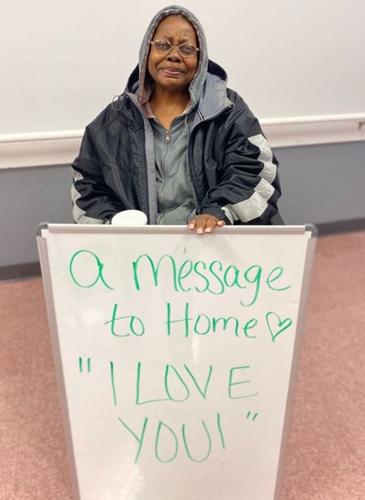 a message
to Home♡
"I LOVE
YOU!"